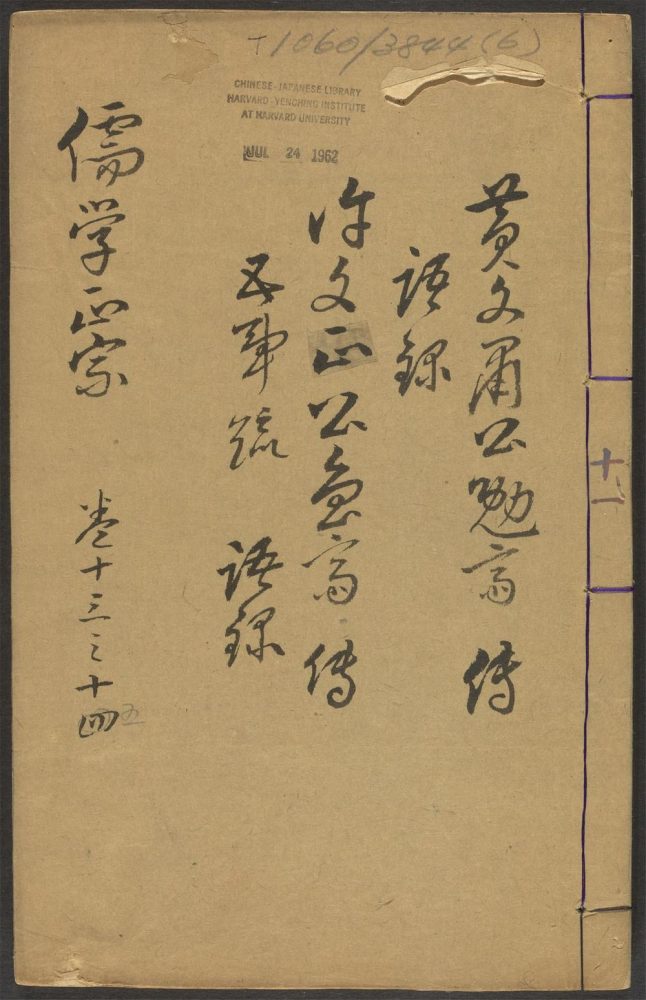 T1060/3844(6)
CHINESE-JAPANESE LIBRARY
HARVARD-YENCHING INSTITUTE
AT HARVARD UNIVERSITY
JUL 24 1962
黄文肅公勉齋 傳
語錄
許文正公魯齋 傳
五事疏 語錄
儒学正宗 卷十三之十四
五
十一